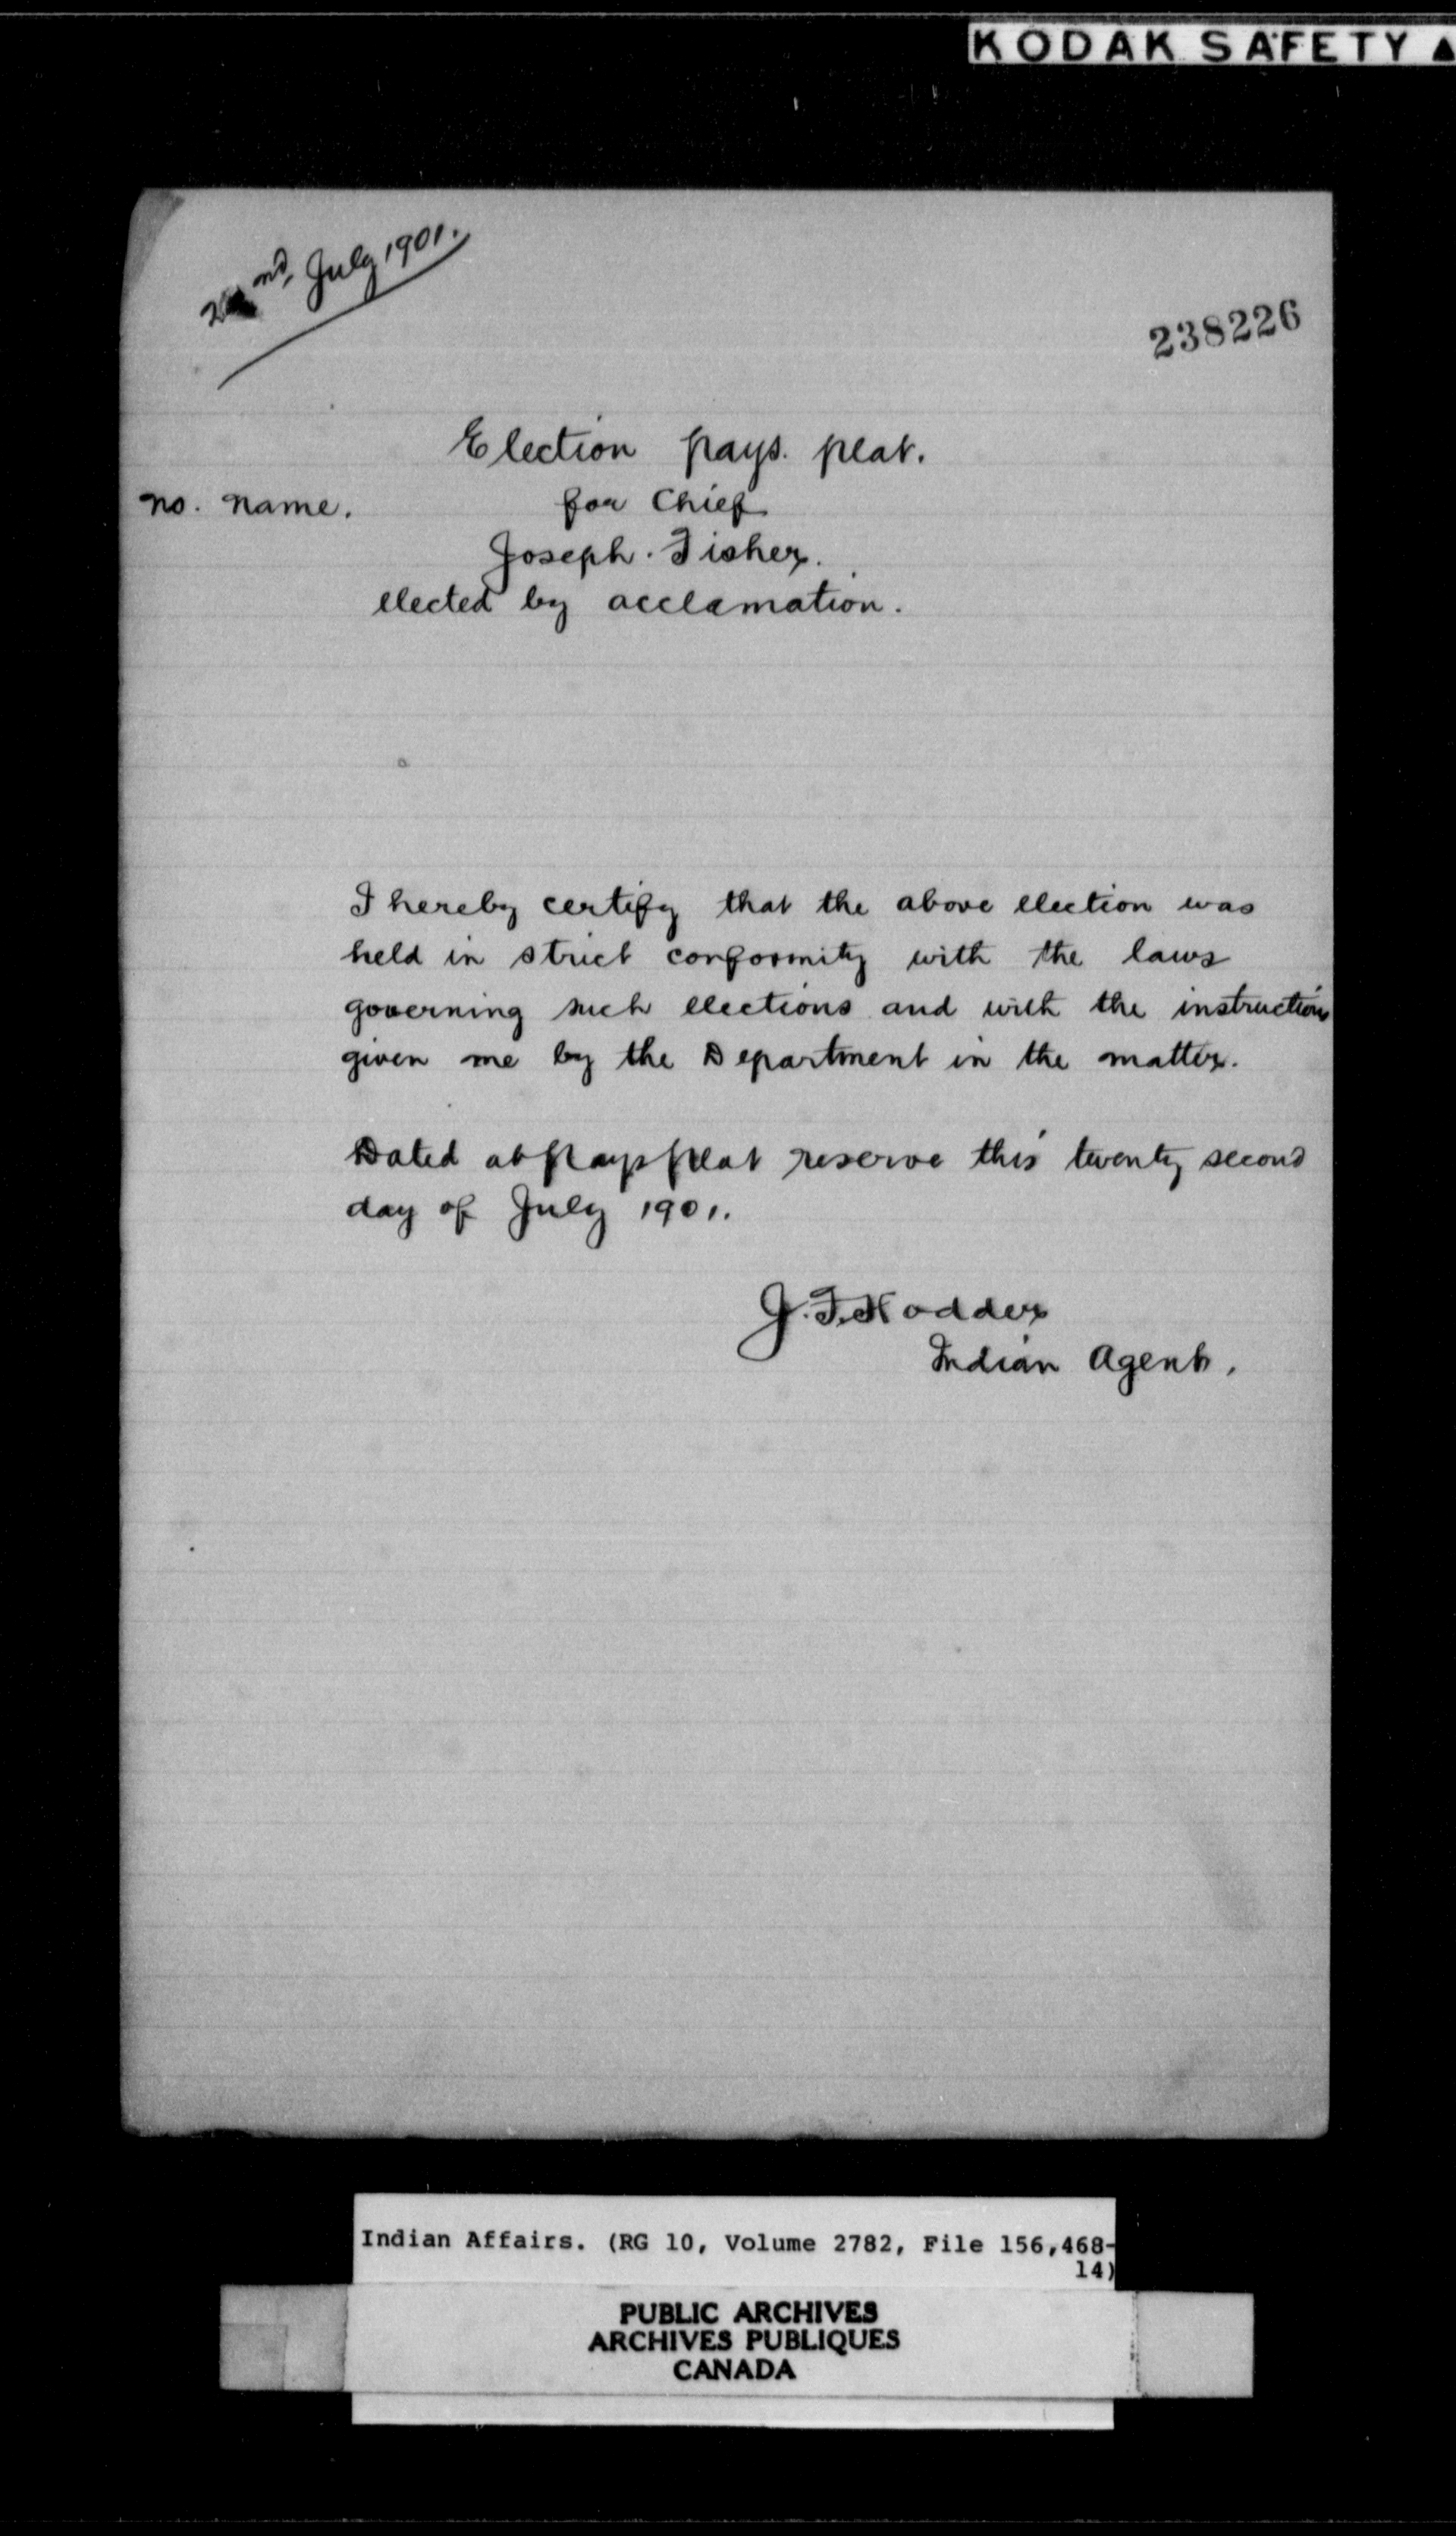 KODAK SAFETY ▲
22nd July 1901.
238226
Election pays. plat.
no. name. for Chief
Joseph. Fisher.
elected by acclamation.
I hereby certify that the above election was
held in strict conformity with the laws
governing such elections and with the instructions
given me by the Department in the matter.
Dated at pays plat reserve this twenty second
day of July 1901.
J. F. Hodder
Indian Agent.
Indian Affairs. (RG 10, Volume 2782, File 156,468-
14)
PUBLIC ARCHIVES
ARCHIVES PUBLIQUES
CANADA